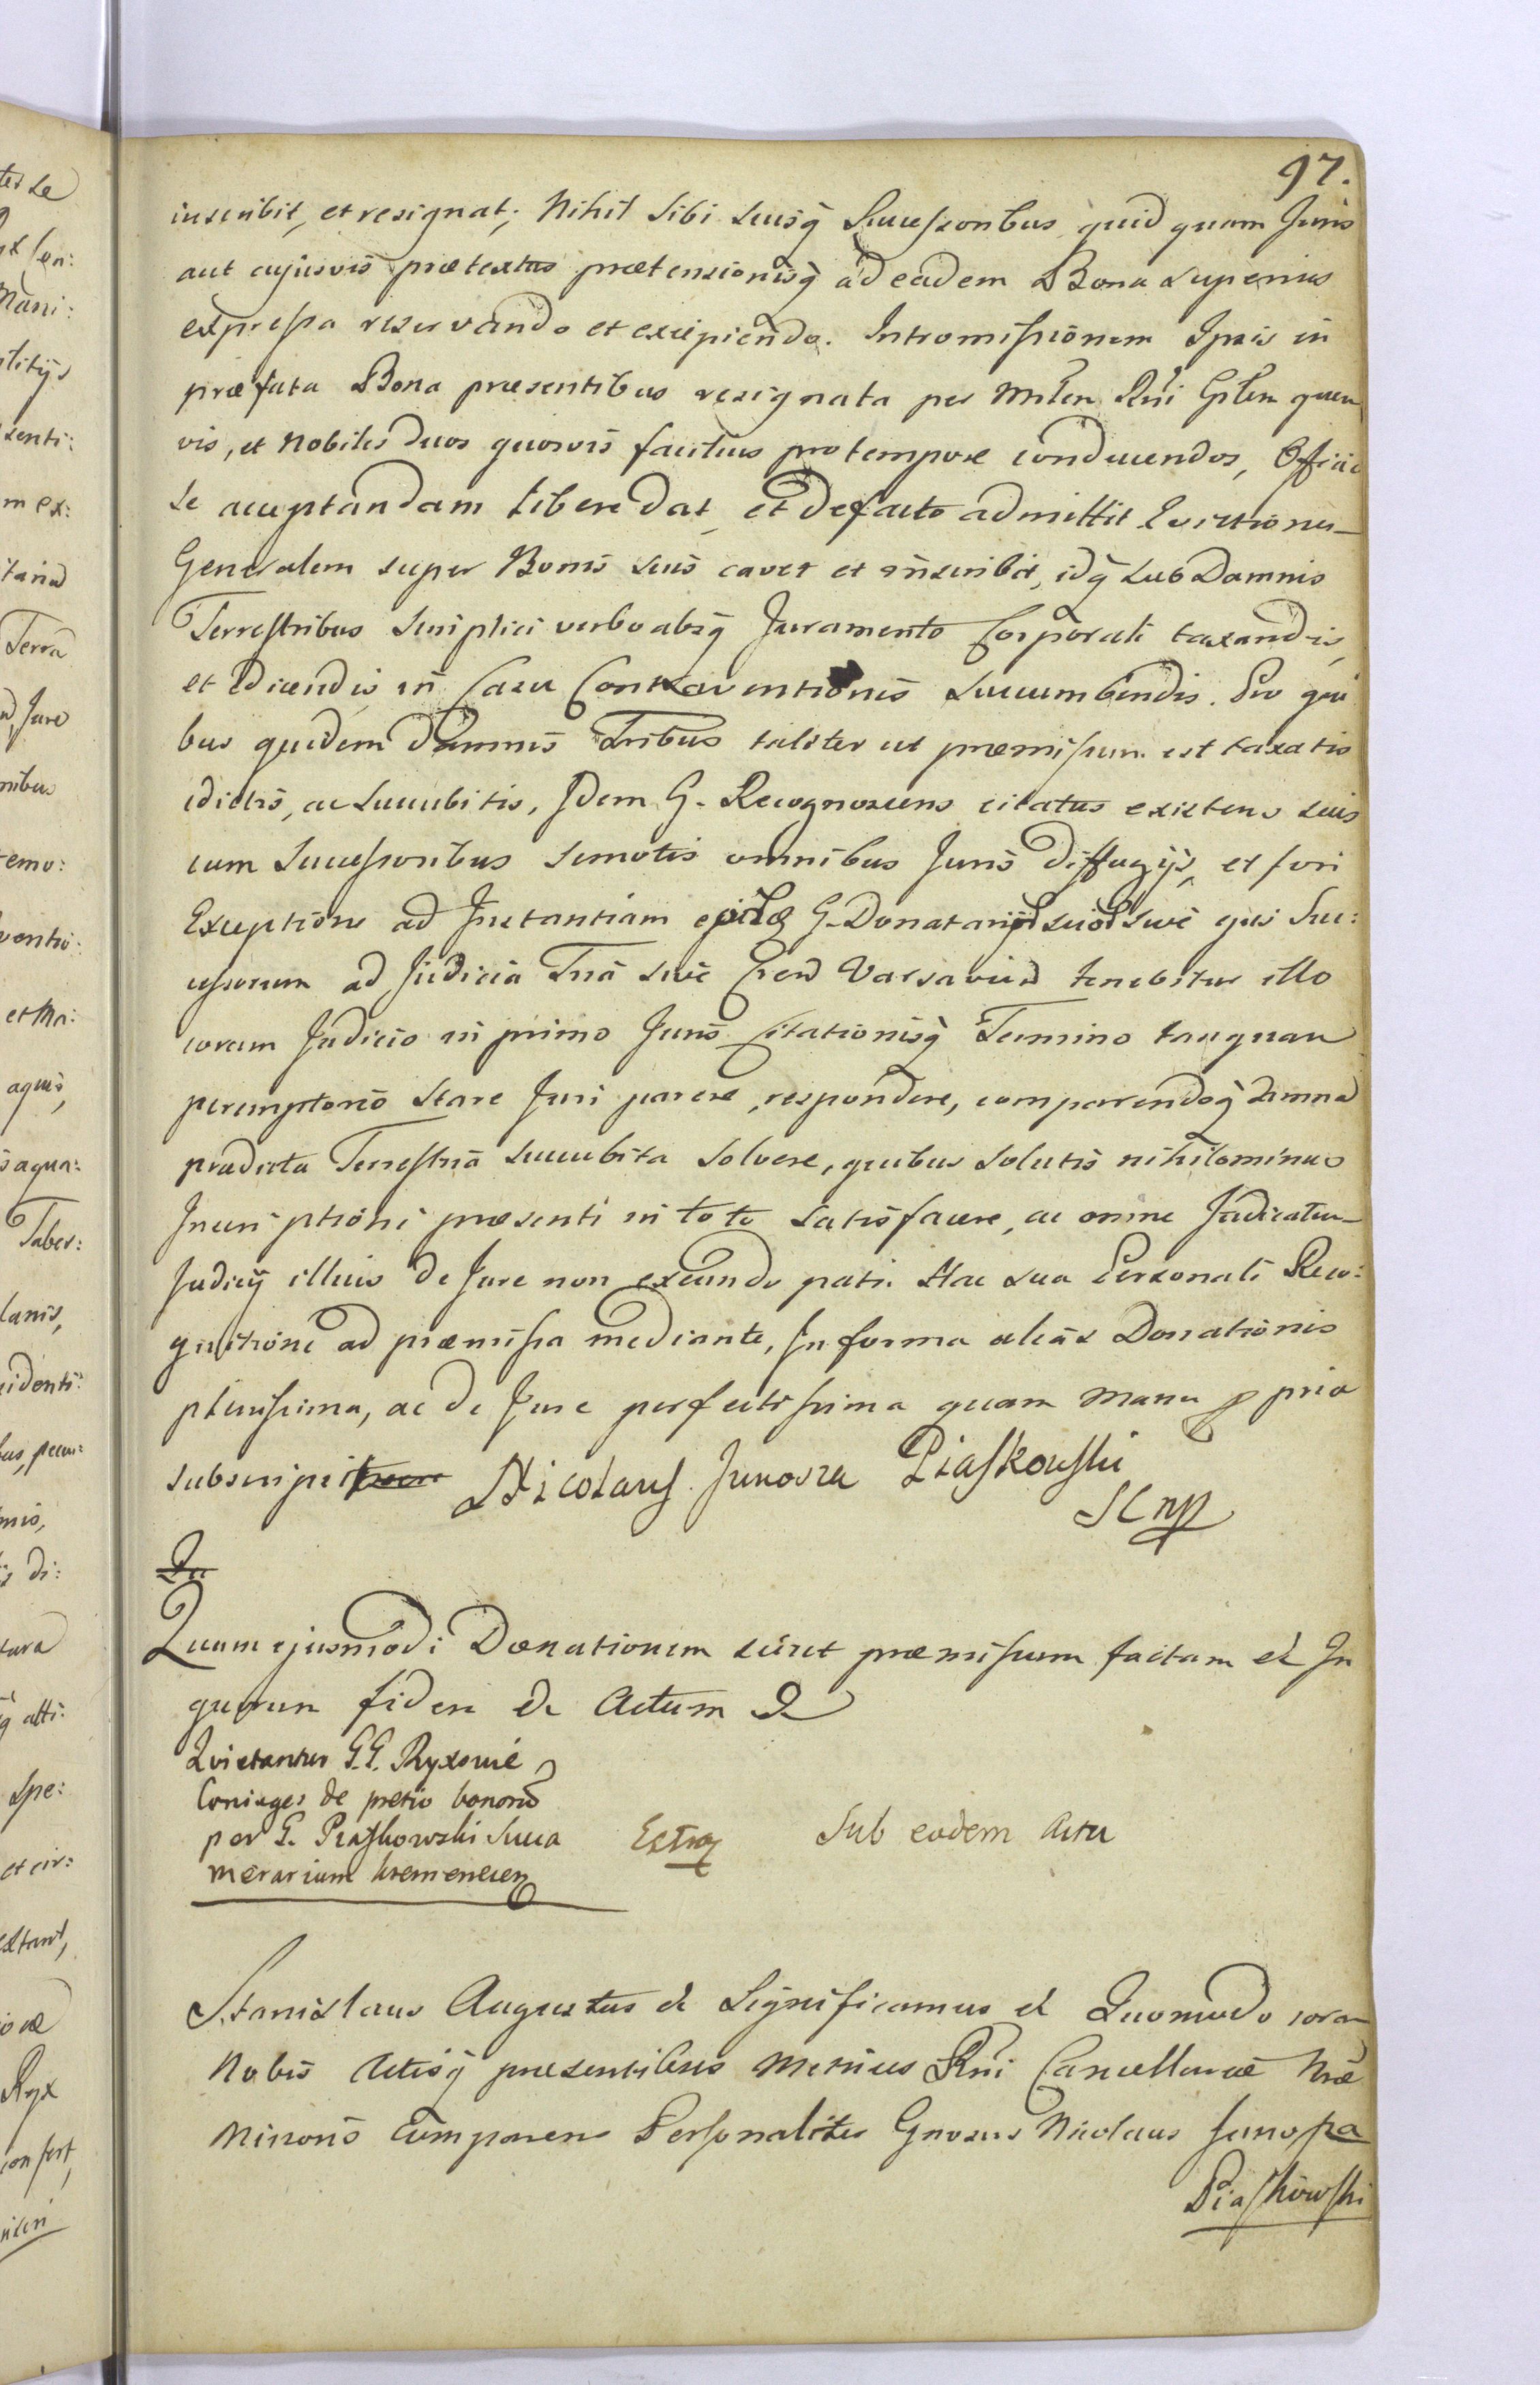 97.
inscribit, et resignat; Nihil sibi suisq̃ Successoribus quid quam Juris
aut cujusvis prætextus prætensionisq̃ ad eadem Bona superius
expressa reservando et excipiendo. Intromissionem Ipsis in
præfata Bona præsentibus resignata per Mñlem Rñi Gñlem quem
vis, et Nobiles duos quosvis facilius pro tempore conducendos, Officio
se acceptandam libere dat, et de facto admittit Evictionem
Generalem super Bonis suis cavet et inscribit, idq̃ sub Damnis
Terrestribus simplici verbo absq̃ Juramento Corporali taxandis,
et edicendis, in Casu Contraventionis succumbendis. Pro qui
bus quidem damnis Tribus taliter ut præmissum est taxatis
edictis, ac succubitis, Idem G. Recognoscens citatus existens suis
cum Successoribus semotis omnibus Juris diffugijs, et fori
Exceptione ad Instantiam G. Donatarij sive ejus Suc:
cessorum ad Judicia Tria sive Varsavien tenebitur illo
coram Judicio in primo Juris Citationisq̃ Termino tanquam
peremptorio stare Juri parere, respondere, comparendoq̃ damna
prædicta Terrestria succubita solvere, quibus solutis nihilominus
Inscriptioni præsenti in toto satisfacere, ac omne Judicatum
Judicij illius de Jure non exeundo pati. Hac sua Personali Reco:
gnitione ad præmissa mediante, In forma aleas Donationis
plenissima, ac de Jure perfectissima quam Manu p pria
subscripsit Nicolaus Junosza Piaskowski
SC mp
Qu
Quam ejusmodi Donationem sicut præmissum factam et In
quorum fidem et Actum
Quietantur G.G. Ryxowie
Coniuges de pretio bonorũ
per G. Piaskowski Succa
merarium kremenecen
Extra Sub eodem Actu
Stanislaus Augustus et Significamus et Quomodo coram
Nobis Actisq̃ præsentibus Metrices Rñi Cancellariæ Nræ
Minoris Comparens Personaliter Gnosus Nicolaus Junosza
Piaskowski